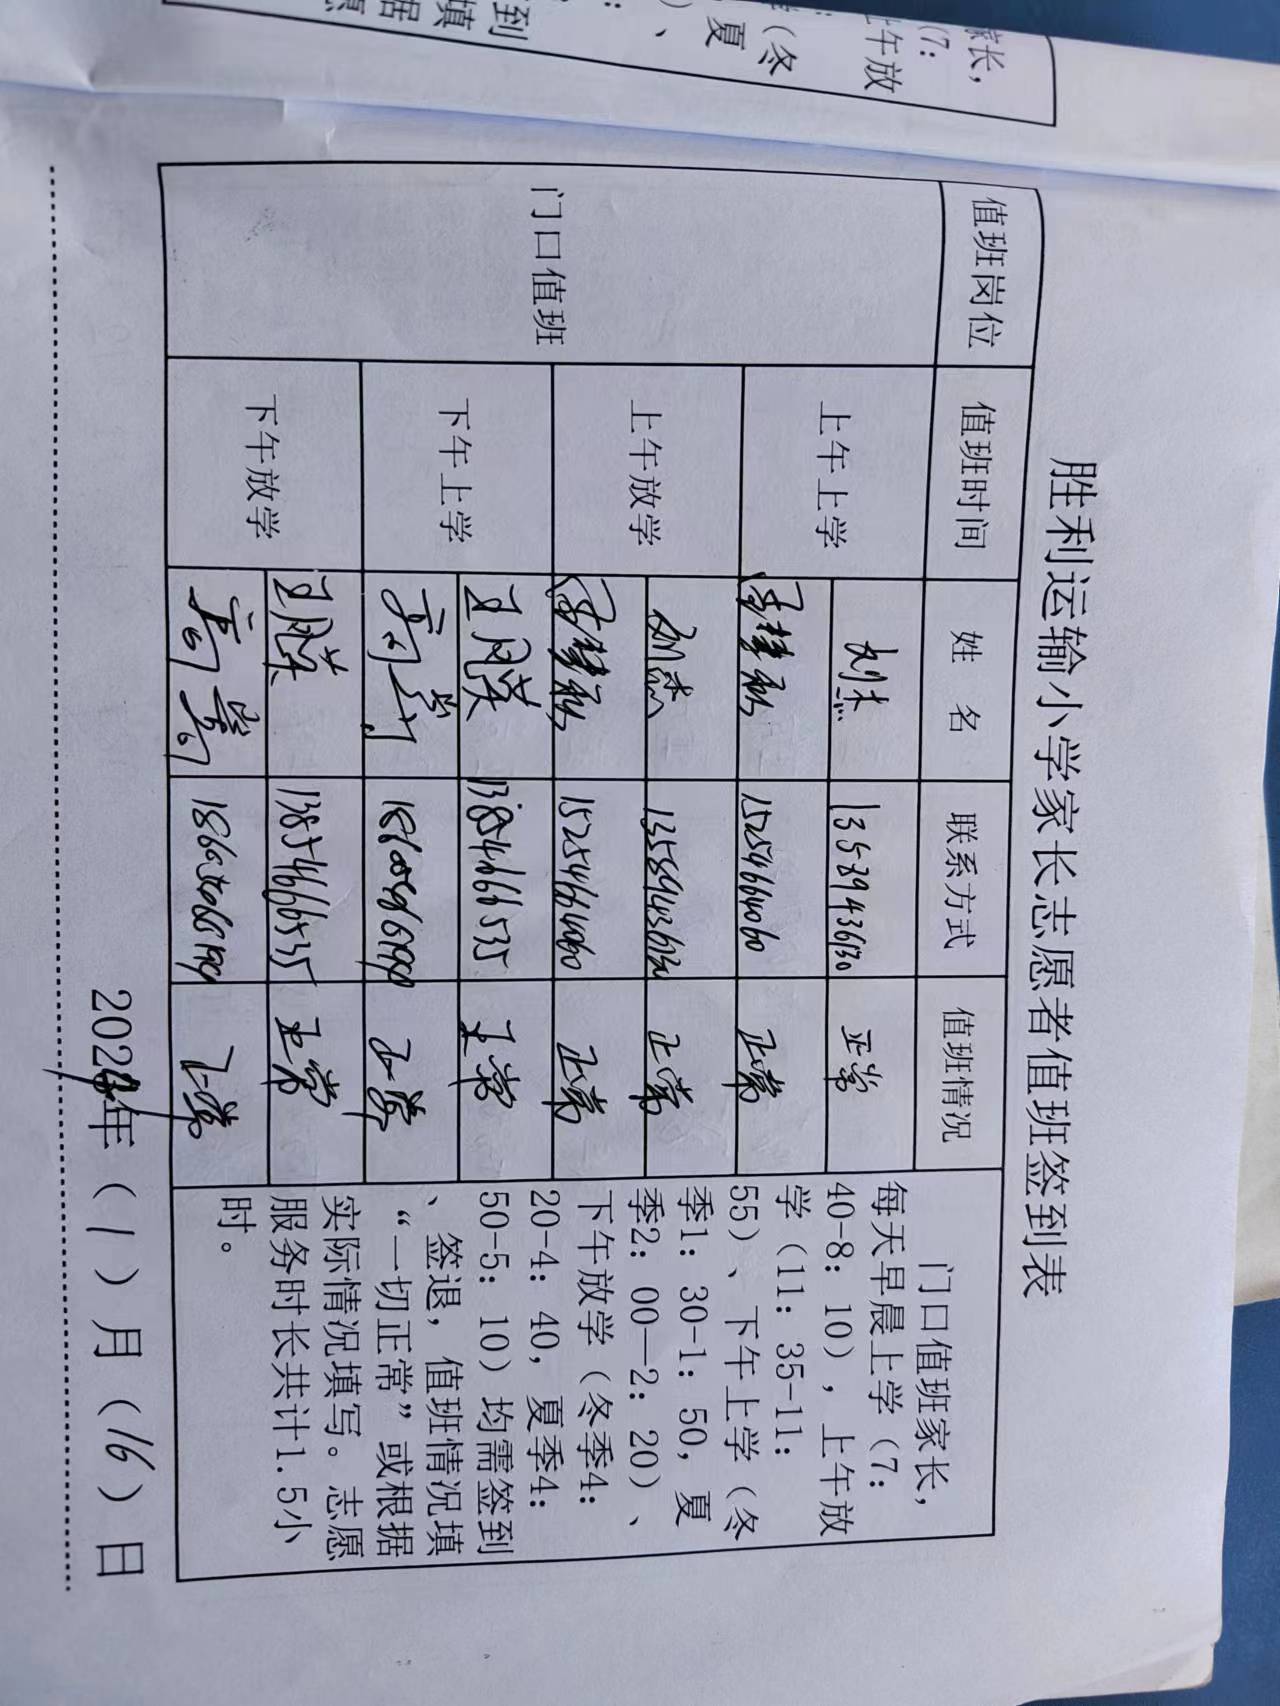 胜利运输小学家长志愿者值班签到表
值班岗位 值班时间 姓 名 联系方式 值班情况
门口值班
上午上学
刘杰 13589436130 正常
15254664060 正常
上午放学
刘杰 13589436130 正常
15254664060 正常
下午上学
13854666535 正常
正常
下午放学
13854666535 正常
正常
门口值班家长，
每天早晨上学（7：
40-8：10），上午放
学（11：35-11：
55）、下午上学（冬
季1：30-1：50，夏
季2：00—2：20）、
下午放学（冬季4：
20-4：40，夏季4：
50-5：10）均需签到
、签退，值班情况填
“一切正常”或根据
实际情况填写。志愿
服务时长共计1.5小
时。
2024年（1）月（16）日
家长，
（7：
上午放
（冬
夏
、
到
填
据